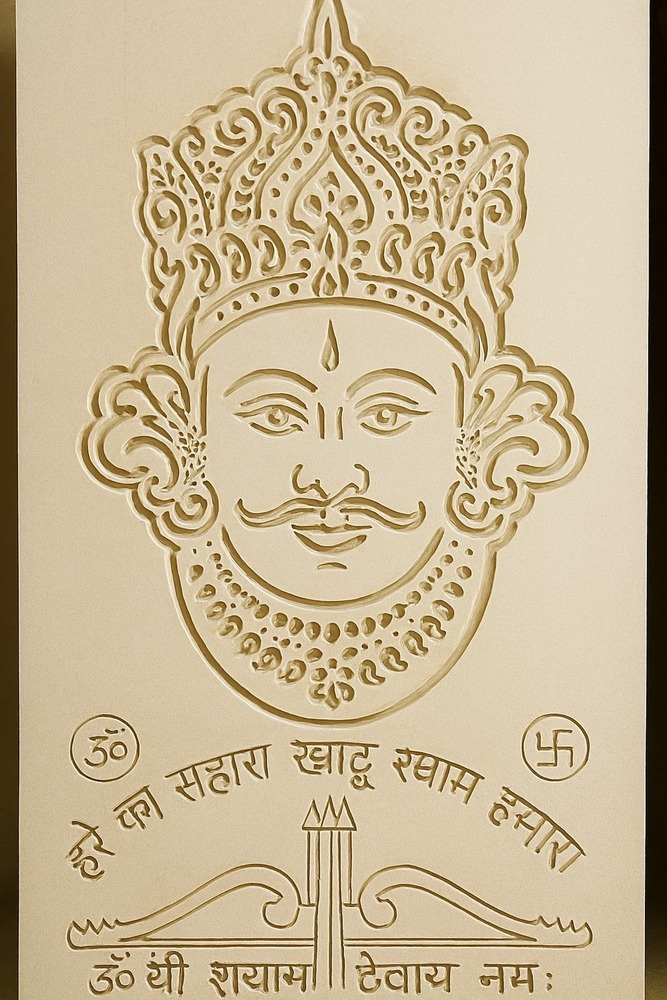 ॐ
हरे का सहारा खाटू श्याम हमारा
ॐ यी शयाम देवाय नमः